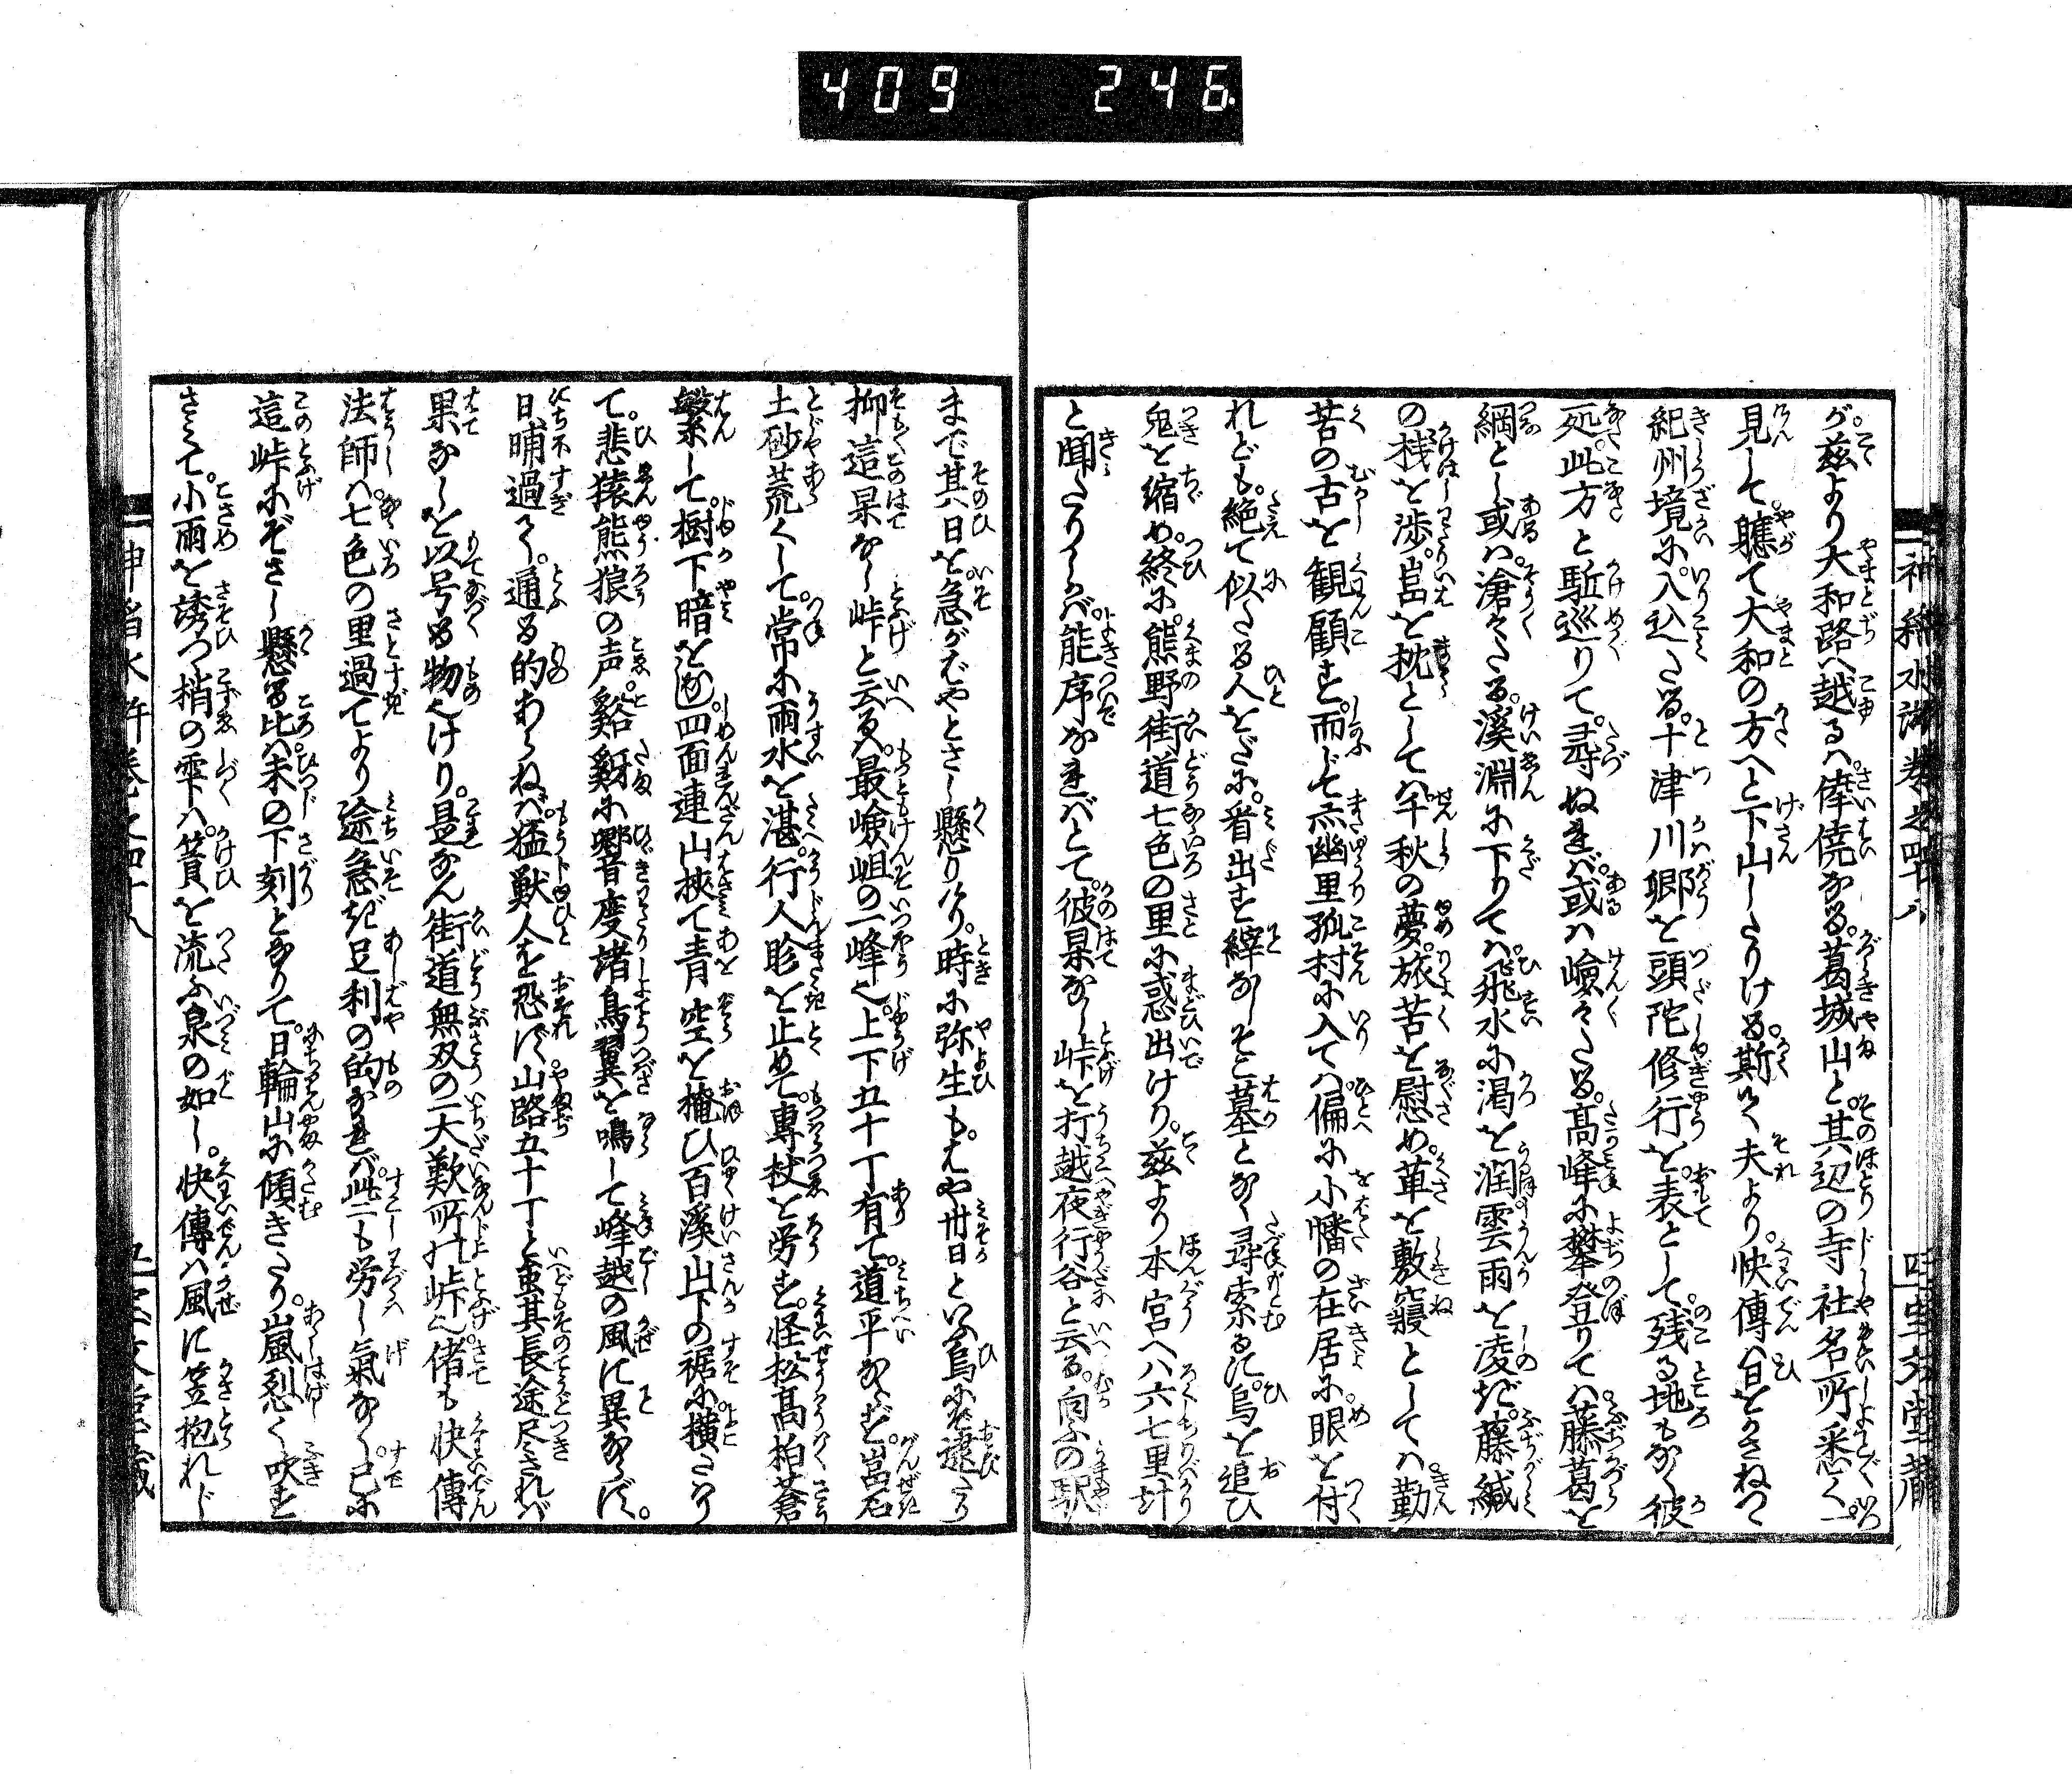 409 246
神稲水滸傳巻之四十八
が茲より大和路へ越るハ倖僥なる葛城山と其辺の寺社名所悉く一
見して軈て大和の方へと下山したりける斯て夫より快傳ハ日をかさねつゝ
紀州境に入込たる十津川郷を頭陀修行を表として残る地もなく彼
処此方と駈巡りて尋ぬれバ或ハ嶮々たる高峰に攀登りてハ藤葛を
綱とし或ハ滄々たる溪淵に下りてハ飛水に渇を潤雲雨を凌ぎ藤緘
の桟を渉嵓を枕としてハ千秋の夢旅苦を慰め草を敷寝としてハ勤
苦の古を観顧す而して亦幽里孤村に入てハ偏に小幡の在居に眼を付
れども絶て似たる人をだに看出す縡なしそこ墓となく尋索るに烏を追ひ
兎を縮め終に熊野街道七色の里に惑出けり茲より本宮へハ六七里計
と聞たりしかバ能序なれバとて彼杲なし峠を打越夜行谷と云る向ふの駅
まで其日を急がばやとさし懸りけり時に弥生もはや卅日といふ烏に逮たり
抑這杲なし峠と云るハ最嶮岨の一峰也上下五十丁有て道平ならず嵓石
土砂荒くして常に雨水を湛行人眕を止めて專杖を労す怪松高柏蒼
繁して樹下暗をなし四面連山挾て青空を掩ひ百溪山下の裾に擴たり
て悲猿熊狼の声谿谺に響度諸鳥翼を鳴して峰越の風に異ならず
日晡過てハ通る的あらねバ猛獣人を恐れず山路五十丁と雖其長途尽されバ
果なしを以号る物也けり是なん街道無双の一大歎所の峠也偖も快傳
法師ハ七色の里過てより途急ぎ足利の的なれバ些も労し氣なく已に
這峠にぞさし懸る比ハ未の下刻となりて日輪山に傾きたり嵐烈く吹を
さそて小雨を誘つ梢の雫ハ筧を流ふ泉の如し快傳ハ風に笠抱れじ